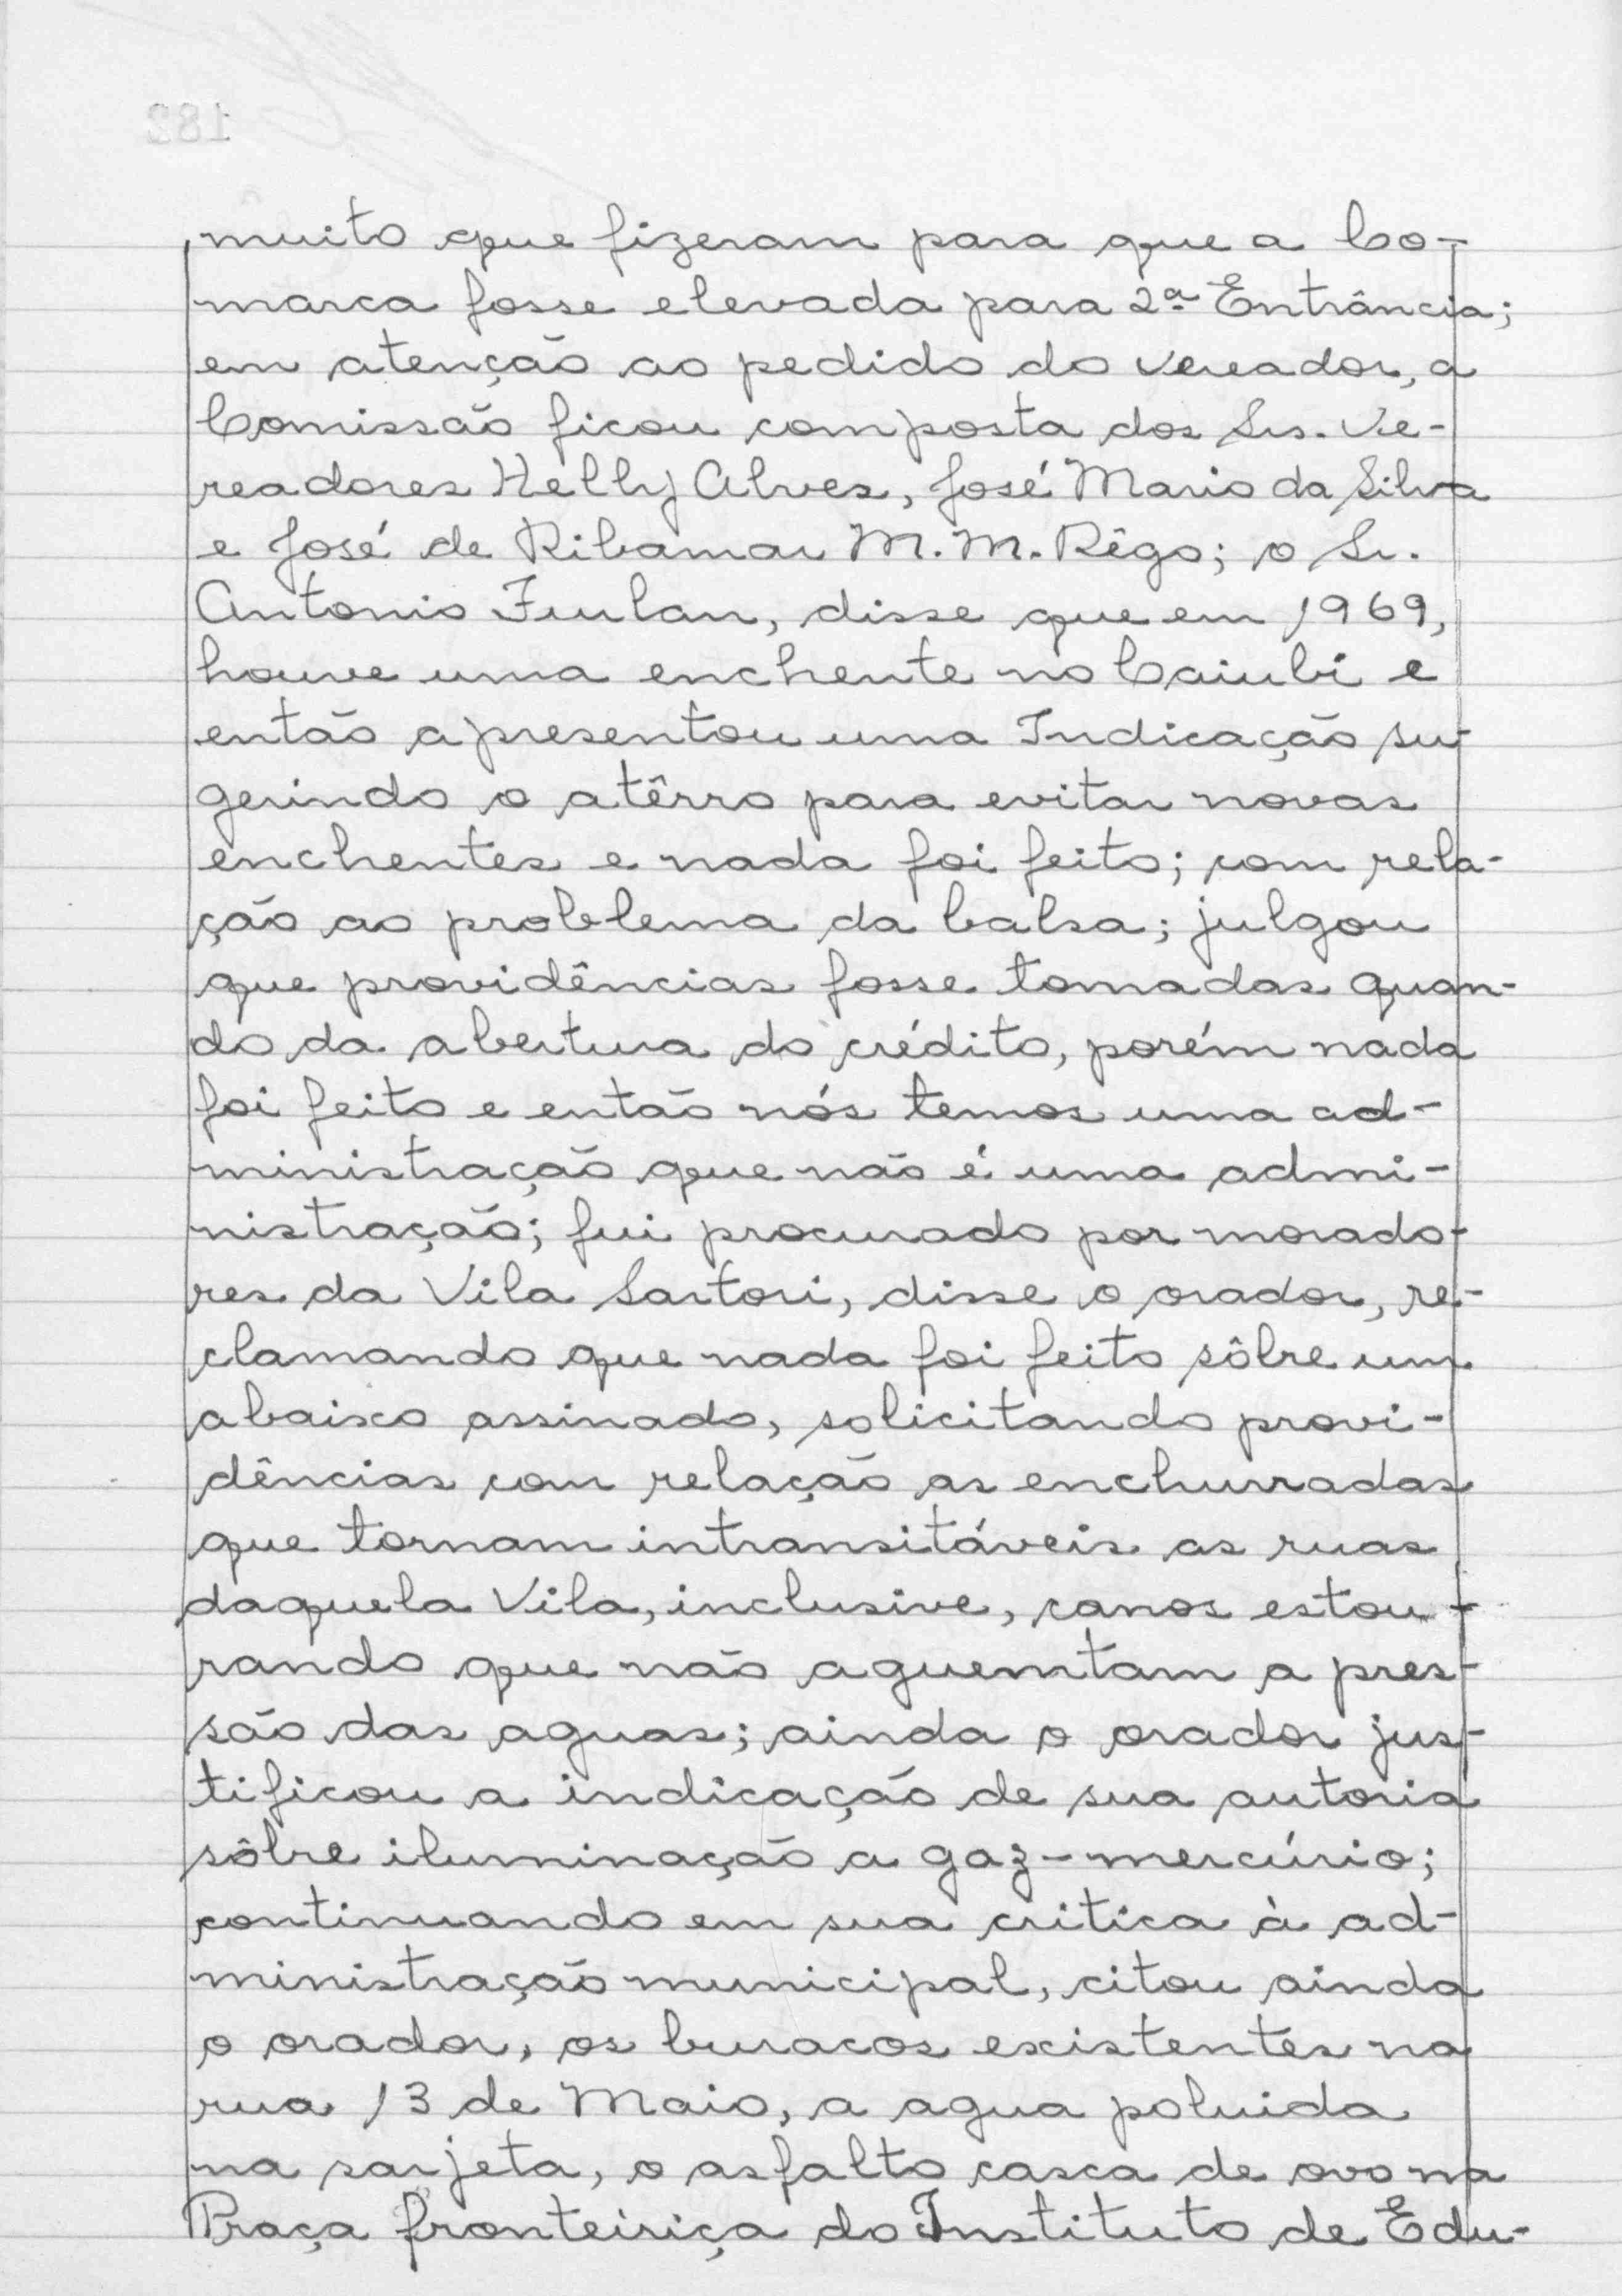 muito que fizeram para que a Co-
marca fosse elevada para 2ª Entrância;
em atenção ao pedido do vereador, a
Comissão ficou composta dos Srs. Ve-
readores Helly Alves, José Mario da Silva
e José de Ribamar M. M. Rêgo; o Sr.
Antonio Furlan, disse que em 1969,
houve uma enchente no Caiubi e
então apresentou uma Indicação su-
gerindo o atêrro para evitar novas
enchentes e nada foi feito; com rela-
ção ao problema da balsa; julgou
que providências fosse tomadas quan-
do da abertura do crédito, porém nada
foi feito e então nós temos uma ad-
ministração que não é uma admi-
nistração; fui procurado por morado-
res da Vila Sartori, disse o orador, re-
clamando que nada foi feito sôbre um
abaixo assinado, solicitando provi-
dências com relação as enchurradas
que tornam intransitáveis as ruas
daquela Vila, inclusive, canos estou-
rando que não aguemtam a pres-
são das aguas; ainda o orador jus-
tificou a indicação de sua autoria
sôbre iluminação a gaz-mercúrio;
continuando em sua critica à ad-
ministração municipal, citou ainda
o orador, os buracos existentes na
rua 13 de Maio, a agua poluida
na sarjeta, o asfalto casca de ovo na
Praça fronteiriça do Instituto de Edu-